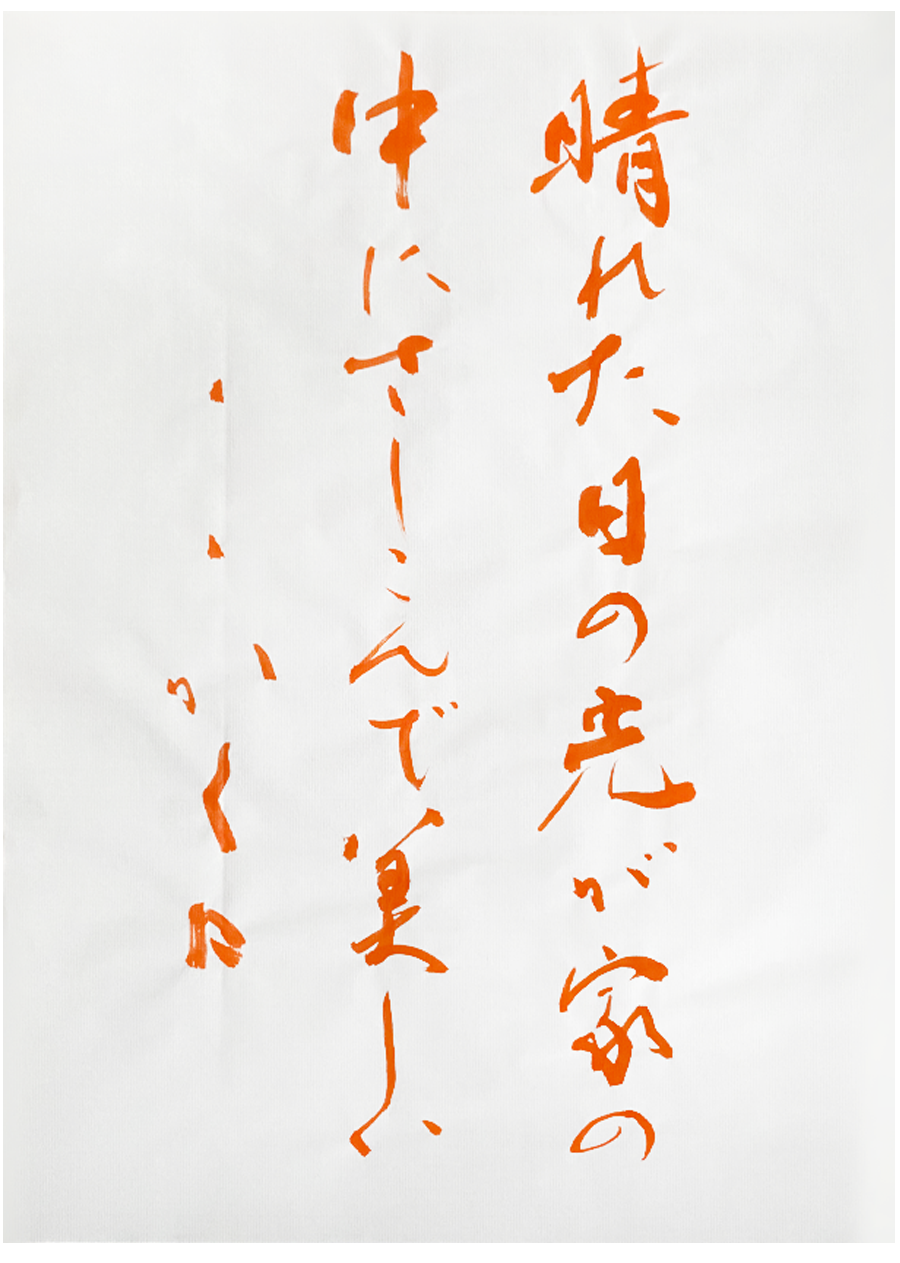 晴れた日の光が家の
中にさしこんで美しい